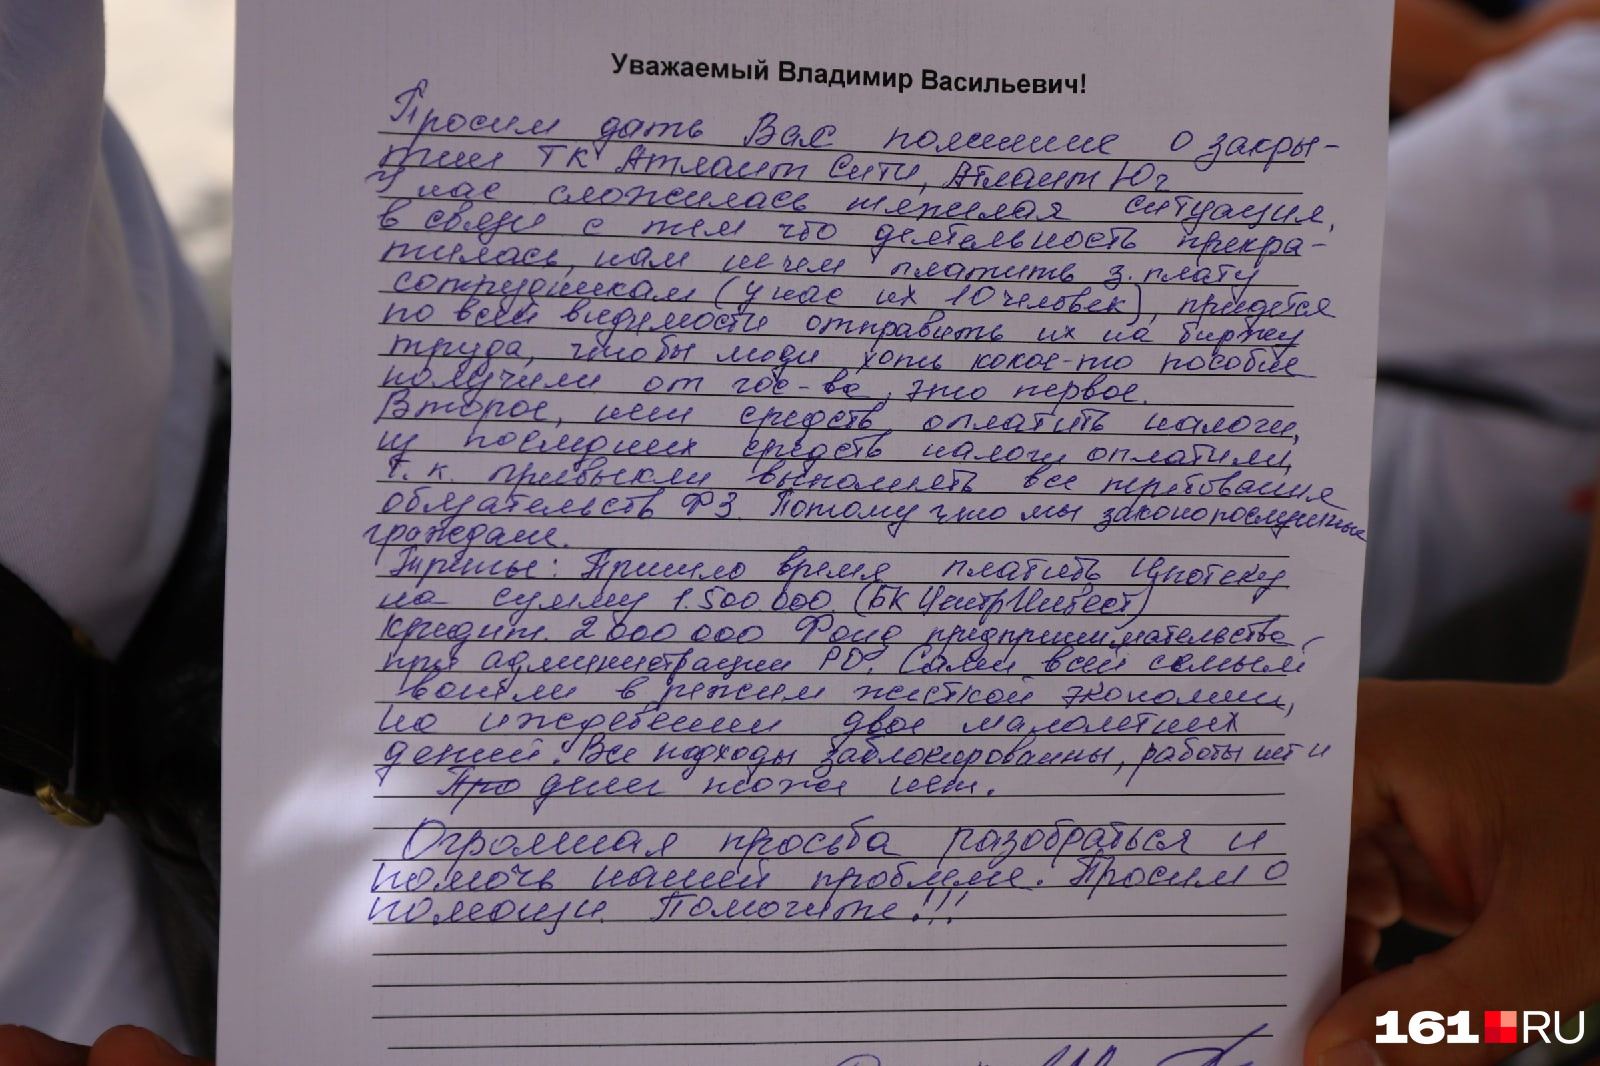 Уважаемый Владимир Васильевич!
Просим дать Вас пояснение о закры-
тии ТК Атлант Сити, Атлант Юг
У нас сложилась тяжелая ситуация,
в связи с тем что деятельность прекра-
тилась, нам нечем платить з.плату
сотрудникам (у нас их 10 человек), придется
по всей видимости отправить их на биржу
труда, чтобы люди хоть какое-то пособие
получили от гос-ва, это первое.
Второе, нет средств оплатить налоги,
из последних средств налоги оплатили,
т.к. привыкли выполнять все требования
обязательств ФЗ. Потому что мы законопослушные
граждане.
Третье: Пришло время платить Ипотеку
на сумму 1.500.000. (БК ЦентрИнвест)
кредит 2 000 000 Фонд предпринимательства
при администрации РО. Сами всей семьей
вошли в режим жесткой экономии,
на иждевении двое малолетних
детей. Все подходы заблокированны, работы нет и
Про денег тоже нет.
Огромная просьба разобраться и
помочь нашей проблеме. Просим о
помощи. Помогите!!!
161.RU